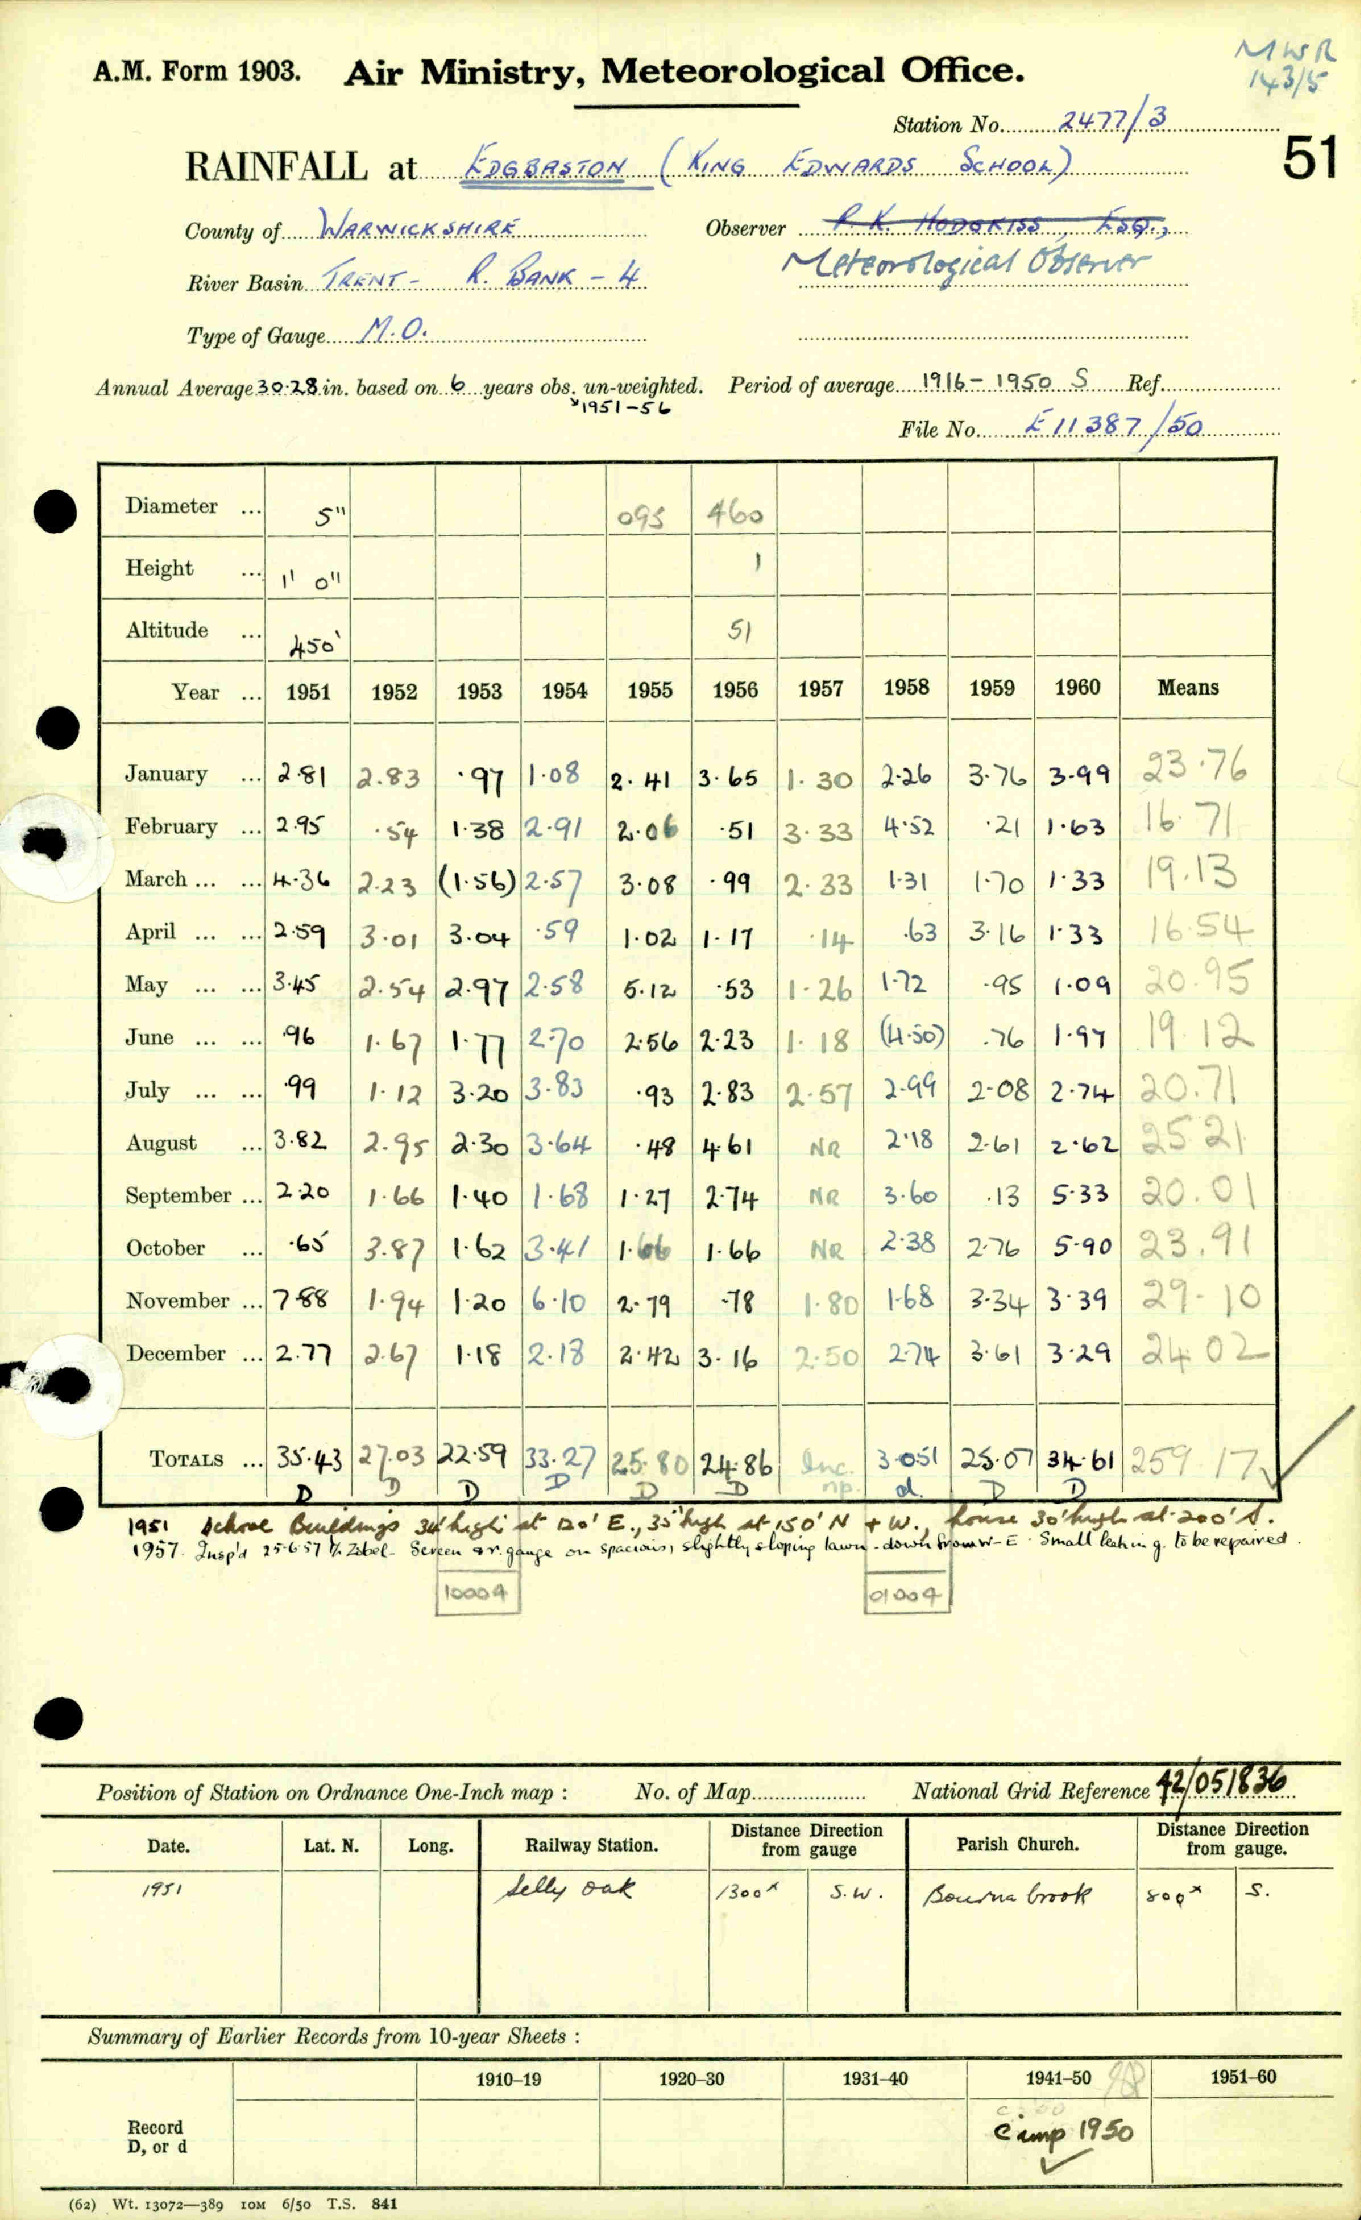 MWR
143/5
A.M. Form 1903. Air Ministry, Meteorological Office.
Station No. 2477/3
51
RAINFALL at EDGBASTON (KING EDWARDS SCHOOL)
County of WARWICKSHIRE Observer P. K. HODGKISS, ESQ.,
Meteorological Observer
River Basin TRENT - R. BANK - 4
Type of Gauge M.O.
Annual Average 30.28 in. based on 6 years obs. un-weighted. Period of average 1916-1950 S Ref.
1951-56
File No. E 11387/50
Diameter ... 5" 095 460
Height ... 1' 0" 1
Altitude ... 450' 51
Year ... 1951 1952 1953 1954 1955 1956 1957 1958 1959 1960 Means
January ... 2.81 2.83 .97 1.08 2.41 3.65 1.30 2.26 3.76 3.99 23.76
February ... 2.95 .54 1.38 2.91 2.06 .51 3.33 4.52 .21 1.63 16.71
March ... ... 4.36 2.23 (1.56) 2.57 3.08 .99 2.33 1.31 1.70 1.33 19.13
April ... ... 2.59 3.01 3.04 .59 1.02 1.17 .14 .63 3.16 1.33 16.54
May ... ... 3.45 2.54 2.97 2.58 5.12 .53 1.26 1.72 .95 1.09 20.95
June ... ... .96 1.67 1.77 2.70 2.56 2.23 1.18 (4.50) .76 1.97 19.12
July ... ... .99 1.12 3.20 3.83 .93 2.83 2.57 2.99 2.08 2.74 20.71
August ... 3.82 2.95 2.30 3.64 .48 4.61 NR 2.18 2.61 2.62 25.21
September ... 2.20 1.66 1.40 1.68 1.27 2.74 NR 3.60 .13 5.33 20.01
October ... .65 3.87 1.62 3.41 1.66 1.66 NR 2.38 2.76 5.90 23.91
November ... 7.88 1.94 1.20 6.10 2.79 .78 1.80 1.68 3.34 3.39 29.10
December ... 2.77 2.67 1.18 2.18 2.42 3.16 2.50 2.74 3.61 3.29 24.02
TOTALS ... 35.43 27.03 22.59 33.27 25.80 24.86 Inc. 3.051 25.07 34.61 259.17
D D D D D D np. d. D D
1951 School Buildings 34' high at 120' E., 35' high at 150' N + W., house 30' high at 200' S.
1957. Insp'd 25.6.57 Zobel - Screen & r. gauge on spacious, slightly sloping lawn - down from W-E. Small leak in g. to be repaired.
10004 01004
Position of Station on Ordnance One-Inch map : No. of Map National Grid Reference 42/051836
Date. Lat. N. Long. Railway Station. Distance from gauge Direction Parish Church. Distance from gauge. Direction
1951 Selly Oak 1300x S.W. Bournabrook 800x S.
Summary of Earlier Records from 10-year Sheets :
1910–19 1920–30 1931–40 1941–50 1951–60
Record
D, or d
C imp 1950
(62) Wt. 13072—389 10M 6/50 T.S. 841